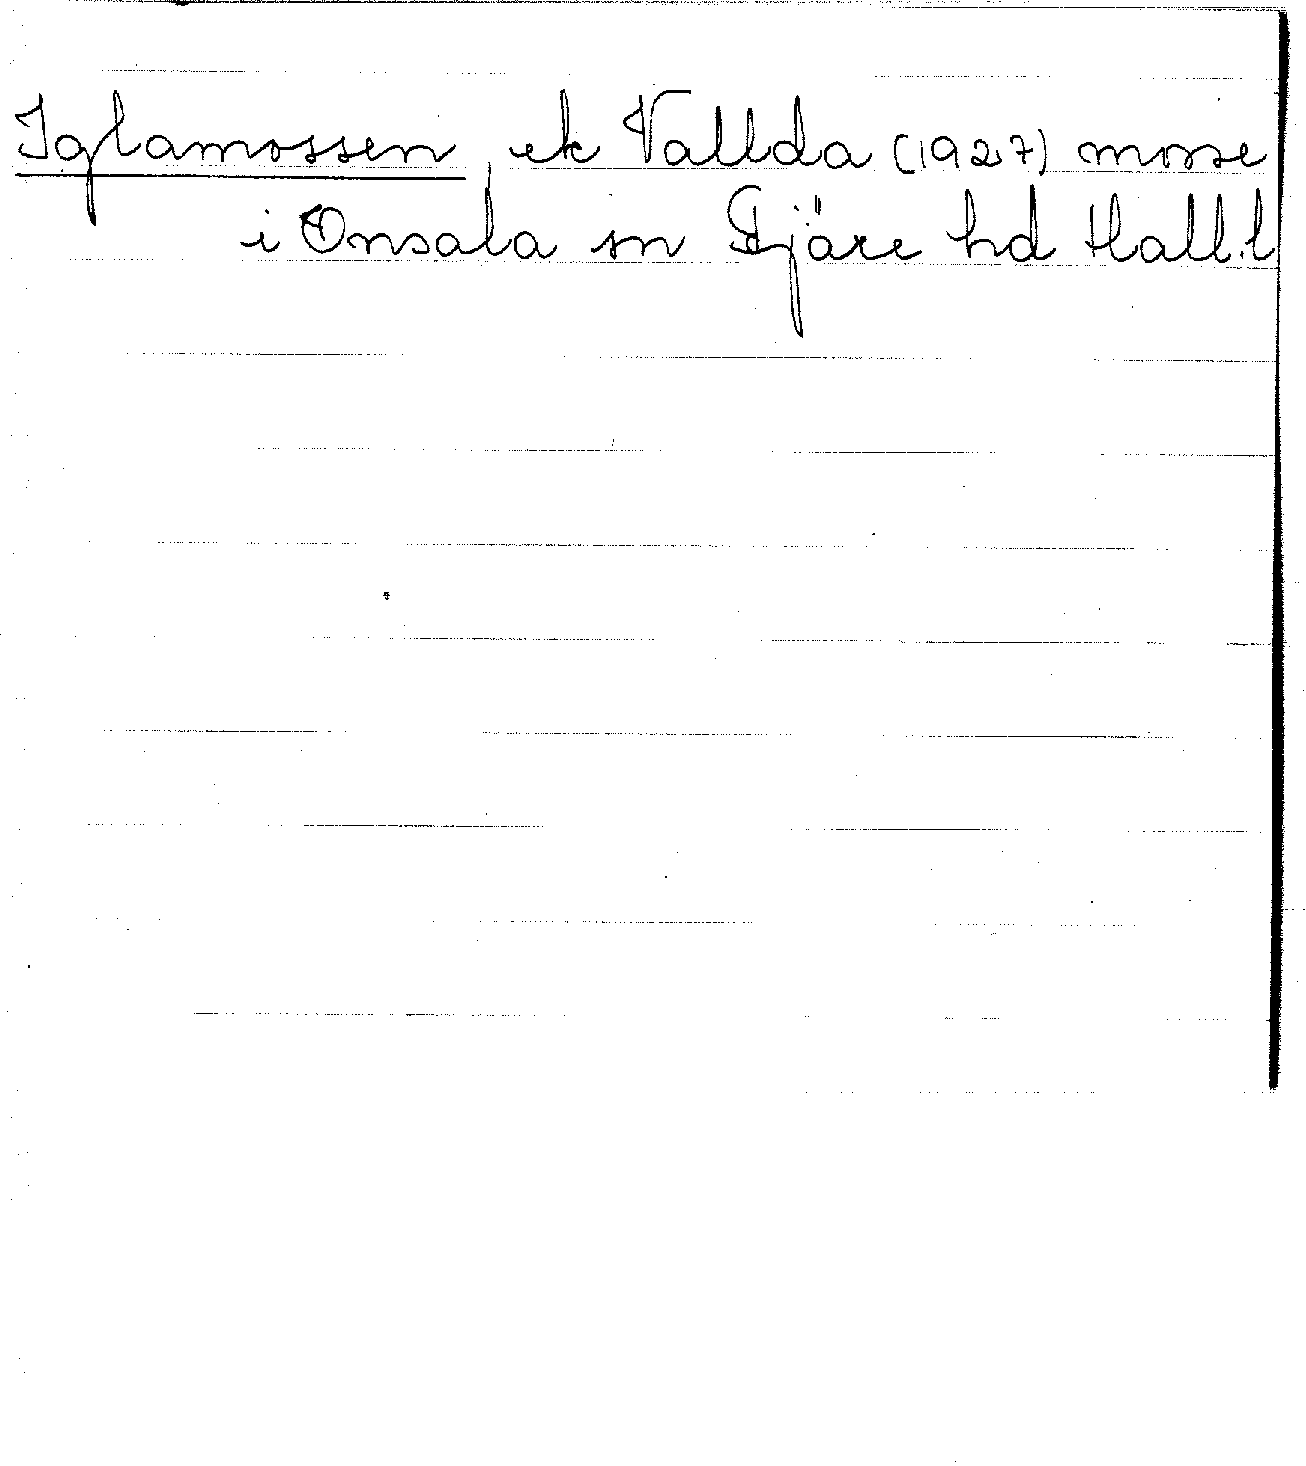 Iglamossen, ek Vallda (1927) mosse
i Onsala sn Fjäre hd Hall.l